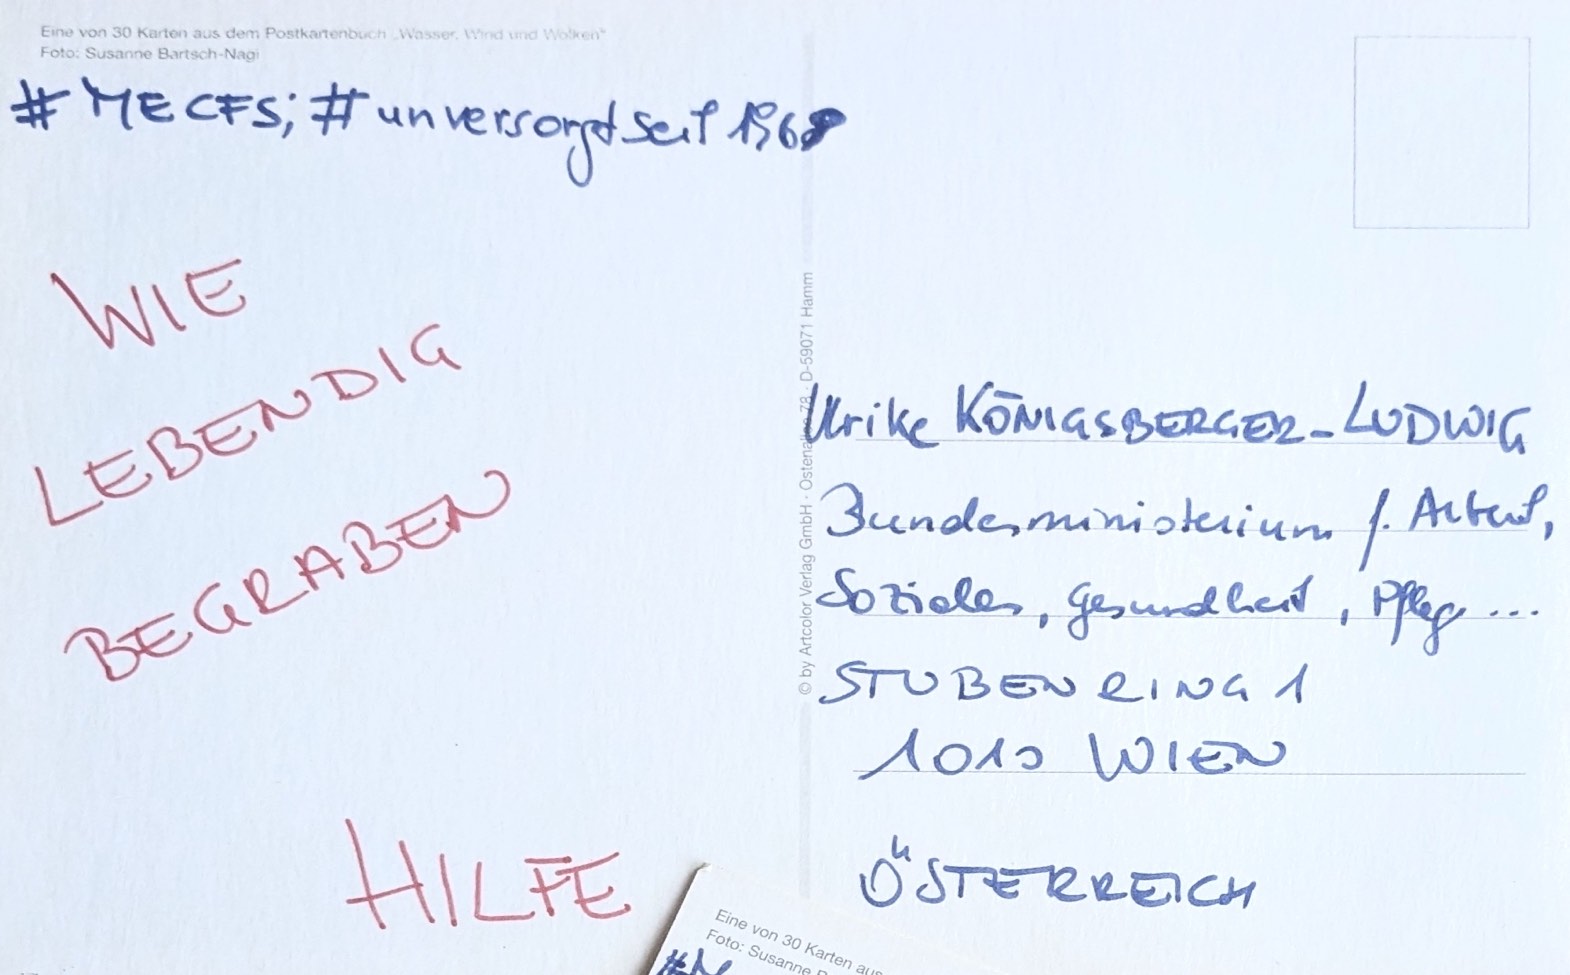 Eine von 30 Karten aus dem Postkartenbuch „Wasser, Wind und Wolken“
Foto: Susanne Bartsch-Nagi
#MECFS; #unversorgtseit1968
WIE
LEBENDIG
BEGRABEN
HILFE
© by Artcolor Verlag GmbH · Ostenallee 78 · D-59071 Hamm
Ulrike KÖNIGSBERGER-LUDWIG
Bundesministerium f. Arbeit,
Soziales, Gesundheit, Pfleg...
STUBENRING 1
1010 WIEN
ÖSTERREICH
Eine von 30 Karten aus
Foto: Susanne
#M